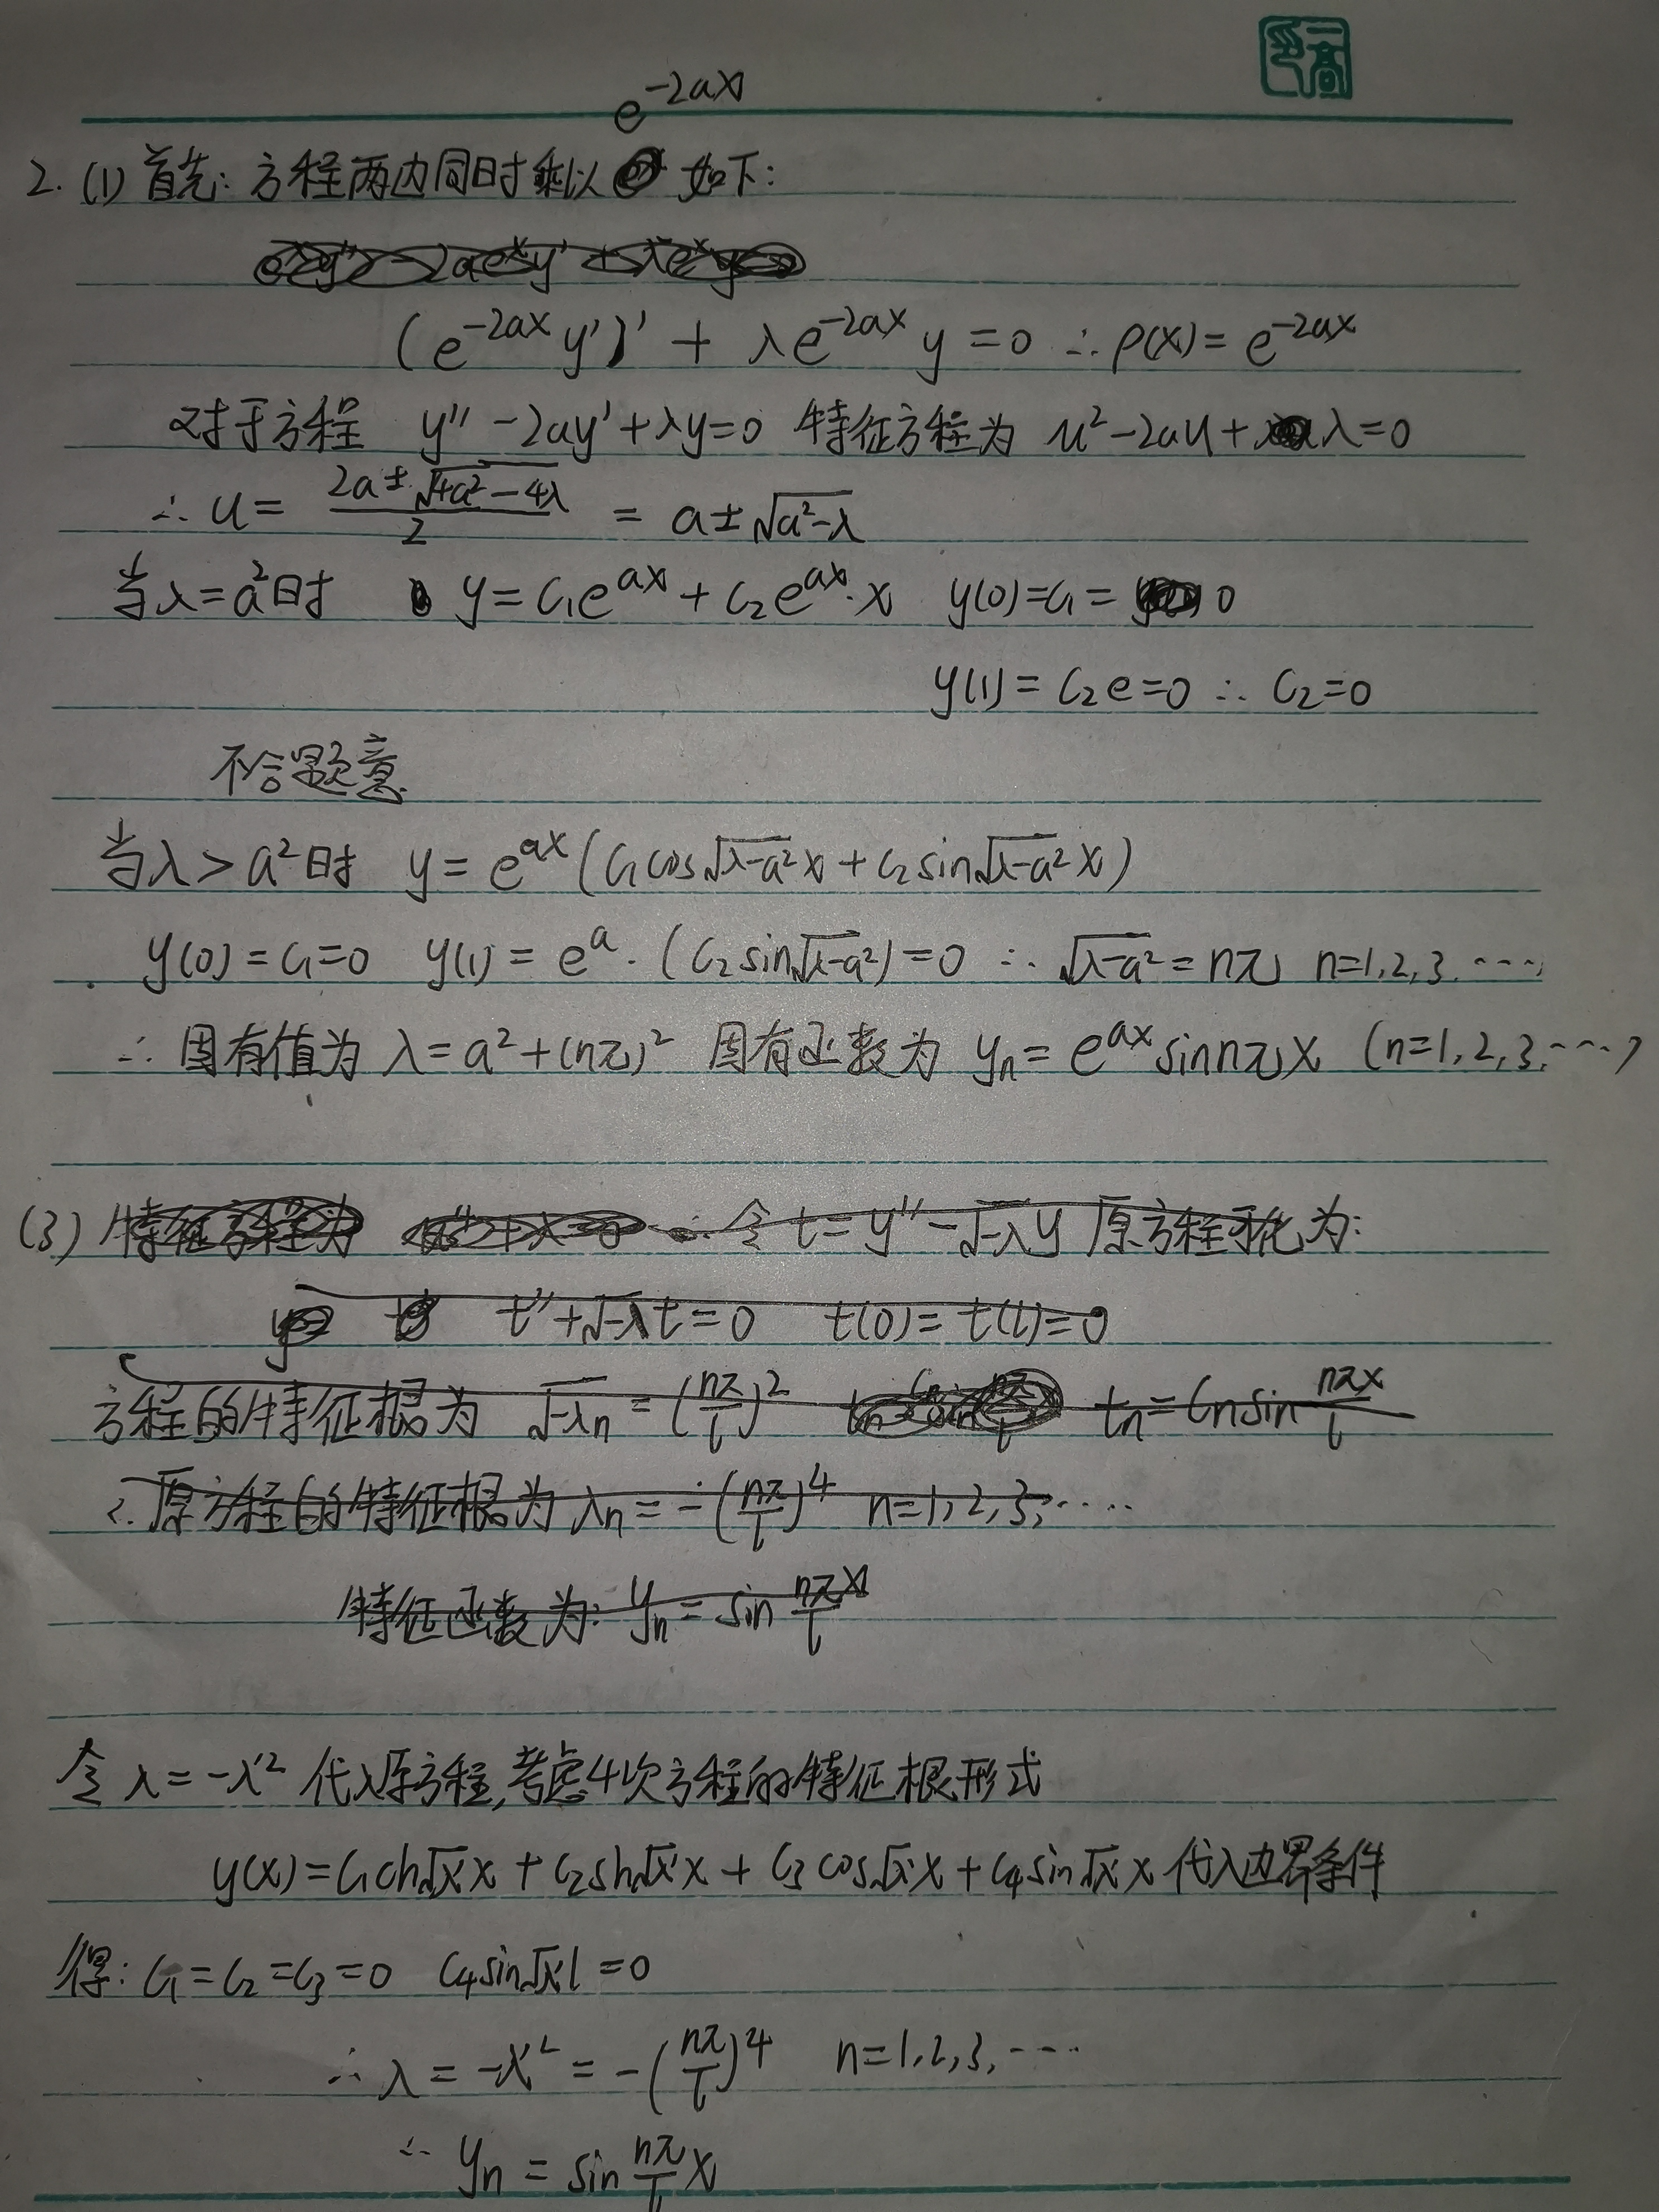 e^{-2ax}
2. (1) 首先: 方程两边同时乘以 如下:
(e^{-2ax} y')' + λe^{-2ax} y = 0 ∴ ρ(x) = e^{-2ax}
对于方程 y'' - 2ay' + λy = 0 特征方程为 u² - 2au + λ = 0
∴ u = \frac{2a ± \sqrt{4a² - 4λ}}{2} = a ± \sqrt{a² - λ}
当λ = a²时 y = C₁e^{ax} + C₂e^{ax}·x y(0) = C₁ = 0
y(1) = C₂e = 0 ∴ C₂ = 0
不合题意
当λ > a²时 y = e^{ax}(C₁cos\sqrt{λ-a²}x + C₂sin\sqrt{λ-a²}x)
y(0) = C₁ = 0 y(1) = e^a·(C₂sin\sqrt{λ-a²}) = 0 ∴ \sqrt{λ-a²} = nπ n=1,2,3.…
∴ 固有值为 λ = a² + (nπ)² 固有函数为 y_n = e^{ax}sin nπx (n=1,2,3.…)
(3) 特征方程为 令 t = y'' - \sqrt{-λ}y 原方程可化为:
t'' + \sqrt{-λ}t = 0 t(0) = t(l) = 0
方程的特征根为 \sqrt{-λ_n} = (\frac{nπ}{l})² t_n = C_n sin\frac{nπx}{l}
∴ 原方程的特征根为 λ_n = -(\frac{nπ}{l})⁴ n=1,2,3,…
特征函数为: y_n = sin\frac{nπx}{l}
令 λ = -λ'² 代入原方程,考虑4次方程的特征根形式
y(x) = C₁ch\sqrt{λ'}x + C₂sh\sqrt{λ'}x + C₃cos\sqrt{λ'}x + C₄sin\sqrt{λ'}x 代入边界条件
得: C₁ = C₂ = C₃ = 0 C₄sin\sqrt{λ'}l = 0
∴ λ = -λ'² = -(\frac{nπ}{l})⁴ n=1,2,3,…
∴ y_n = sin\frac{nπ}{l}x